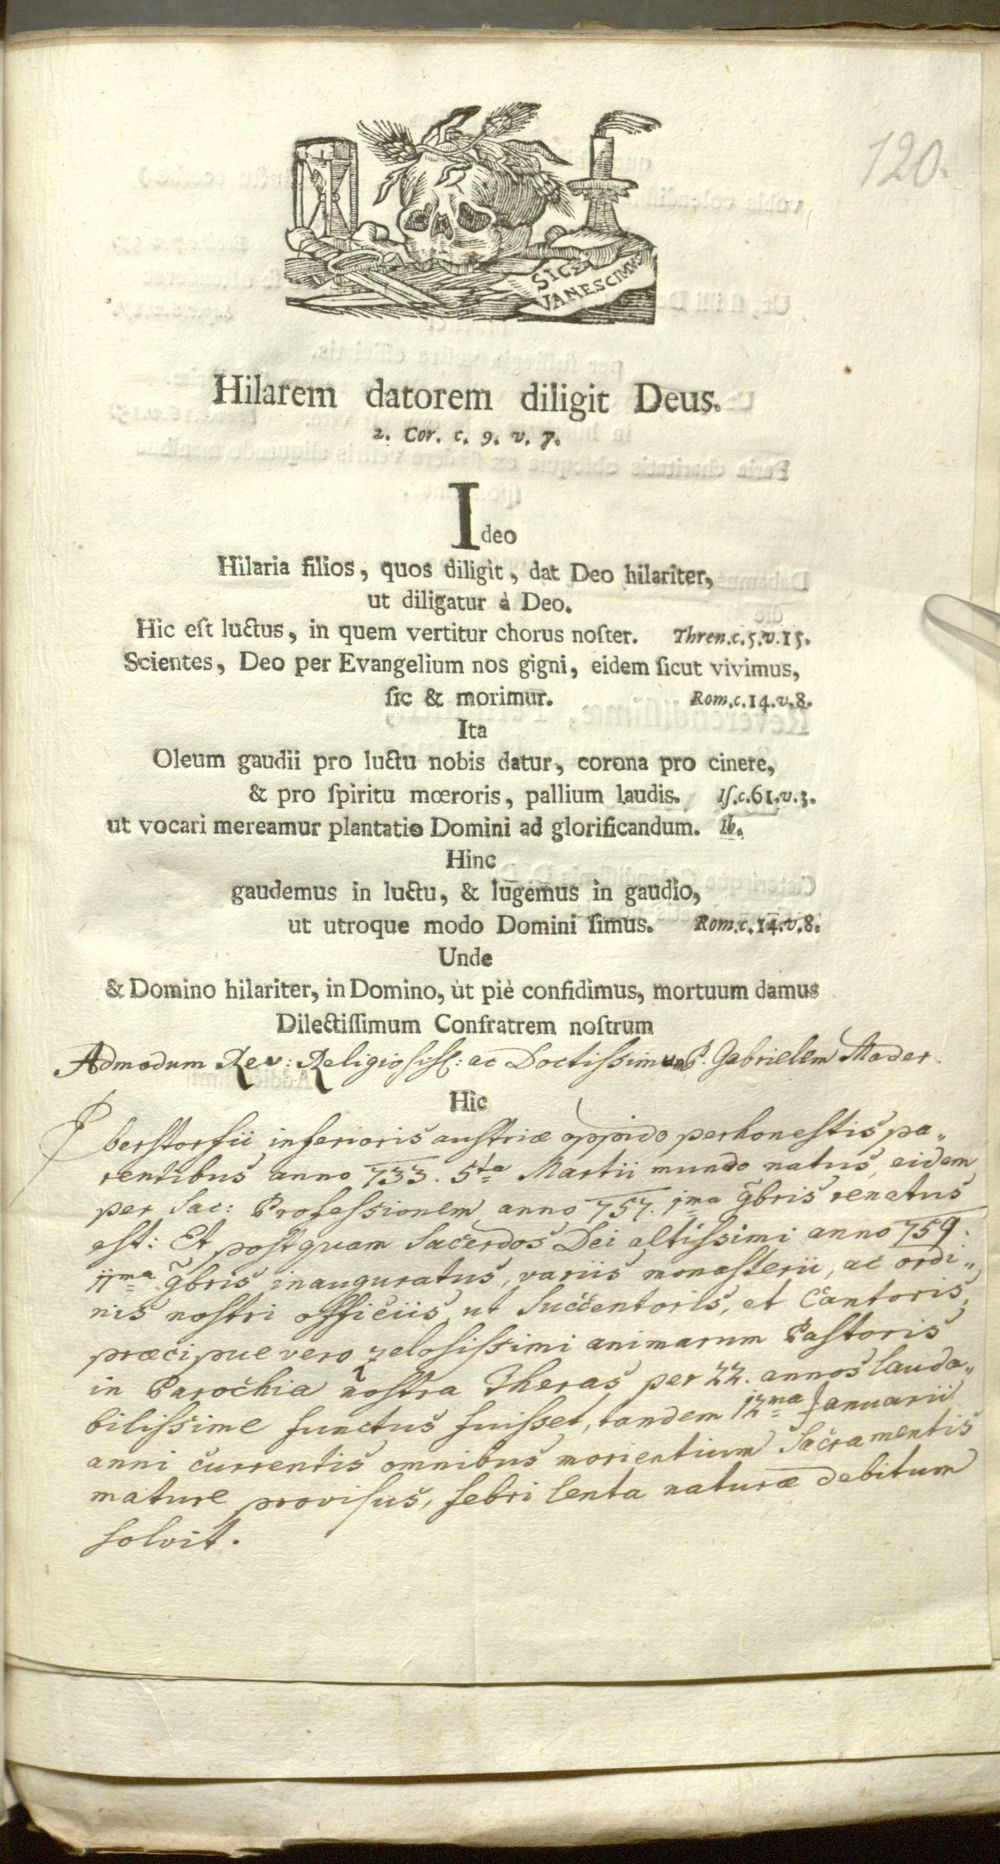 120.
SIC ET
VANESCIMUS
Hilarem datorem diligit Deus.
2. Cor. c. 9. v. 7.
Ideo
Hilaria filios, quos diligit, dat Deo hilariter,
ut diligatur à Deo.
Hic est luctus, in quem vertitur chorus noster. Thren. c. 5. v. 15.
Scientes, Deo per Evangelium nos gigni, eidem sicut vivimus,
sic & morimur. Rom. c. 14. v. 8.
Ita
Oleum gaudii pro luctu nobis datur, corona pro cinere,
& pro spiritu mœroris, pallium laudis. Is. c. 61. v. 3.
ut vocari mereamur plantatio Domini ad glorificandum. Ib.
Hinc
gaudemus in luctu, & lugemus in gaudio,
ut utroque modo Domini simus. Rom. c. 14. v. 8.
Unde
& Domino hilariter, in Domino, ùt piè confidimus, mortuum damus
Dilectissimum Confratrem nostrum
Admodum Rev: Religiosiss: ac Doctissimum P. Gabrielem Mader.
Hic
berstorfii inferioris austriæ oppido perhonestis pa„
rentibus anno 733. 5ta Martii mundo natus, eidem
per Sac: Professionem anno 757. 1ma 9bris renatus
est: Et postquam Sacerdos Dei altissimi anno 759.
11ma 9bris inauguratus, variis monasterii, ac ordi„
nis nostri officiis, ut Succentoris, et Cantoris,
præcipue vero zelosissimi animarum Pastoris
in Parochia nostra Theras per 22. annos lauda„
bilissime functus fuisset, tandem 12ma Januarii
anni currentis omnibus morientium Sacramentis
mature provisus, febri lenta naturæ debitum
solvit.